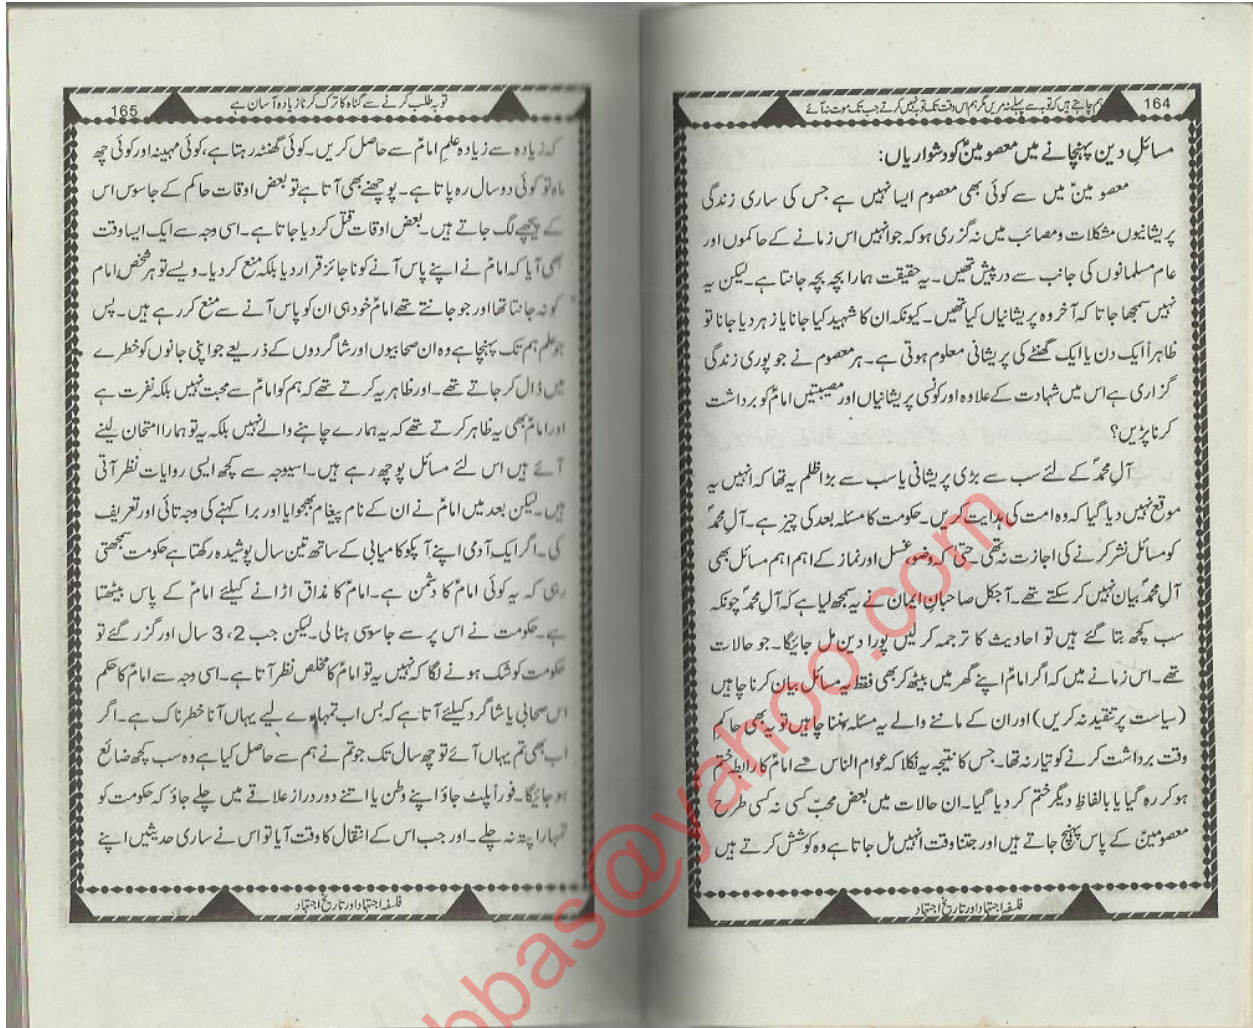 ہم چاہتے ہیں کہ توبہ سے پہلے نہ مریں مگر ہم اس وقت تک توبہ نہیں کرتے جب تک موت نہ آئے
164
مسائلِ دین پہنچانے میں معصومینؑ کو دشواریاں:
معصومینؑ میں سے کوئی بھی معصوم ایسا نہیں ہے جس کی ساری زندگی
پریشانیوں مشکلات و مصائب میں نہ گزری ہو کہ جو انہیں اس زمانے کے حاکموں اور
عام مسلمانوں کی جانب سے درپیش تھیں۔ یہ حقیقت ہمارا بچہ بچہ جانتا ہے۔ لیکن یہ
نہیں سمجھا جاتا کہ آخر وہ پریشانیاں کیا تھیں۔ کیونکہ ان کا شہید کیا جانا یا زہر دیا جانا تو
ظاہراً ایک دن یا ایک گھنٹے کی پریشانی معلوم ہوتی ہے۔ ہر معصوم نے جو پوری زندگی
گزاری ہے اس میں شہادت کے علاوہ اور کونسی پریشانیاں اور مصیبتیں امامؑ کو برداشت
کرنا پڑیں؟
آلِ محمدؐ کے لئے سب سے بڑی پریشانی یا سب سے بڑا ظلم یہ تھا کہ انہیں یہ
موقع نہیں دیا گیا کہ وہ امت کی ہدایت کریں۔ حکومت کا مسئلہ بعد کی چیز ہے۔ آلِ محمدؐ
کو مسائل نشر کرنے کی اجازت نہ تھی۔ حتیٰ کہ وضو، غسل اور نماز کے اہم اہم مسائل بھی
آلِ محمدؐ بیان نہیں کر سکتے تھے۔ آجکل صاحبانِ ایمان نے یہ سمجھ لیا ہے کہ آلِ محمدؐ چونکہ
سب کچھ بتا گئے ہیں تو احادیث کا ترجمہ کرلیں پورا دین مل جائیگا۔ جو حالات
تھے۔ اس زمانے میں کہ اگر امامؑ اپنے گھر میں بیٹھ کر بھی فقط یہ مسائل بیان کرنا چاہیں
(سیاست پر تنقید نہ کریں) اور ان کے ماننے والے یہ مسئلہ سننا چاہیں تو یہ بھی حاکمِ
وقت برداشت کرنے کو تیار نہ تھا۔ جس کا نتیجہ یہ نکلا کہ عوام الناس سے امامؑ کا رابطہ ختم
ہو کر رہ گیا یا بالفاظِ دیگر ختم کر دیا گیا۔ ان حالات میں بعض محبّ کسی نہ کسی طرح
معصومینؑ کے پاس پہنچ جاتے ہیں اور جتنا وقت انہیں مل جاتا ہے وہ کوشش کرتے ہیں
فلسفہ اجتہاد اور تاریخ اجتہاد
توبہ طلب کرنے سے گناہ کا ترک کرنا زیادہ آسان ہے
165
کہ زیادہ سے زیادہ علمِ امامؑ سے حاصل کریں۔ کوئی گھنٹہ رہتا ہے، کوئی مہینہ اور کوئی چھ
ماہ تو کوئی دو سال رہ پاتا ہے۔ پوچھنے بھی آتا ہے تو بعض اوقات حاکم کے جاسوس اس
کے پیچھے لگ جاتے ہیں۔ بعض اوقات قتل کر دیا جاتا ہے۔ اسی وجہ سے ایک ایسا وقت
بھی آیا کہ امامؑ نے اپنے پاس آنے کو ناجائز قرار دیا بلکہ منع کر دیا۔ ویسے تو ہر شخص امام
کو نہ جانتا تھا اور جو جانتے تھے امامؑ خود ہی ان کو پاس آنے سے منع کر رہے ہیں۔ پس
جو علم ہم تک پہنچا ہے وہ ان صحابیوں اور شاگردوں کے ذریعے جو اپنی جانوں کو خطرے
میں ڈال کر جاتے تھے۔ اور ظاہر یہ کرتے تھے کہ ہم کو امامؑ سے محبت نہیں بلکہ نفرت ہے
اور امامؑ بھی یہ ظاہر کرتے تھے کہ یہ ہمارے چاہنے والے نہیں بلکہ یہ تو ہمارا امتحان لینے
آئے ہیں اس لئے مسائل پوچھ رہے ہیں۔ اسیوجہ سے کچھ ایسی روایات نظر آتی
ہیں۔ لیکن بعد میں امامؑ نے ان کے نام پیغام بھجوایا اور برا کہنے کی وجہ بتائی اور تعریف
کی۔ اگر ایک آدمی اپنے آپکو کامیابی کے ساتھ تین سال پوشیدہ رکھتا ہے حکومت سمجھتی
رہی کہ یہ کوئی امامؑ کا دشمن ہے۔ امامؑ کا مذاق اڑانے کیلئے امامؑ کے پاس بیٹھتا
ہے۔ حکومت نے اس پر سے جاسوسی ہٹالی۔ لیکن جب 2، 3 سال اور گزر گئے تو
حکومت کو شک ہونے لگا کہ نہیں یہ تو امامؑ کا مخلص نظر آتا ہے۔ اسی وجہ سے امامؑ کا حکم
اس صحابی یا شاگرد کیلئے آتا ہے کہ بس اب تمہارے لیے یہاں آنا خطرناک ہے۔ اگر
اب بھی تم یہاں آئے تو چھ سال تک جو تم نے ہم سے حاصل کیا ہے وہ سب کچھ ضائع
ہو جائیگا۔ فوراً پلٹ جاؤ اپنے وطن یا اتنے دور دراز علاقے میں چلے جاؤ کہ حکومت کو
تمہارا پتہ نہ چلے۔ اور جب اس کے انتقال کا وقت آیا تو اس نے ساری حدیثیں اپنے
فلسفہ اجتہاد اور تاریخ اجتہاد
bbas@yahoo.com